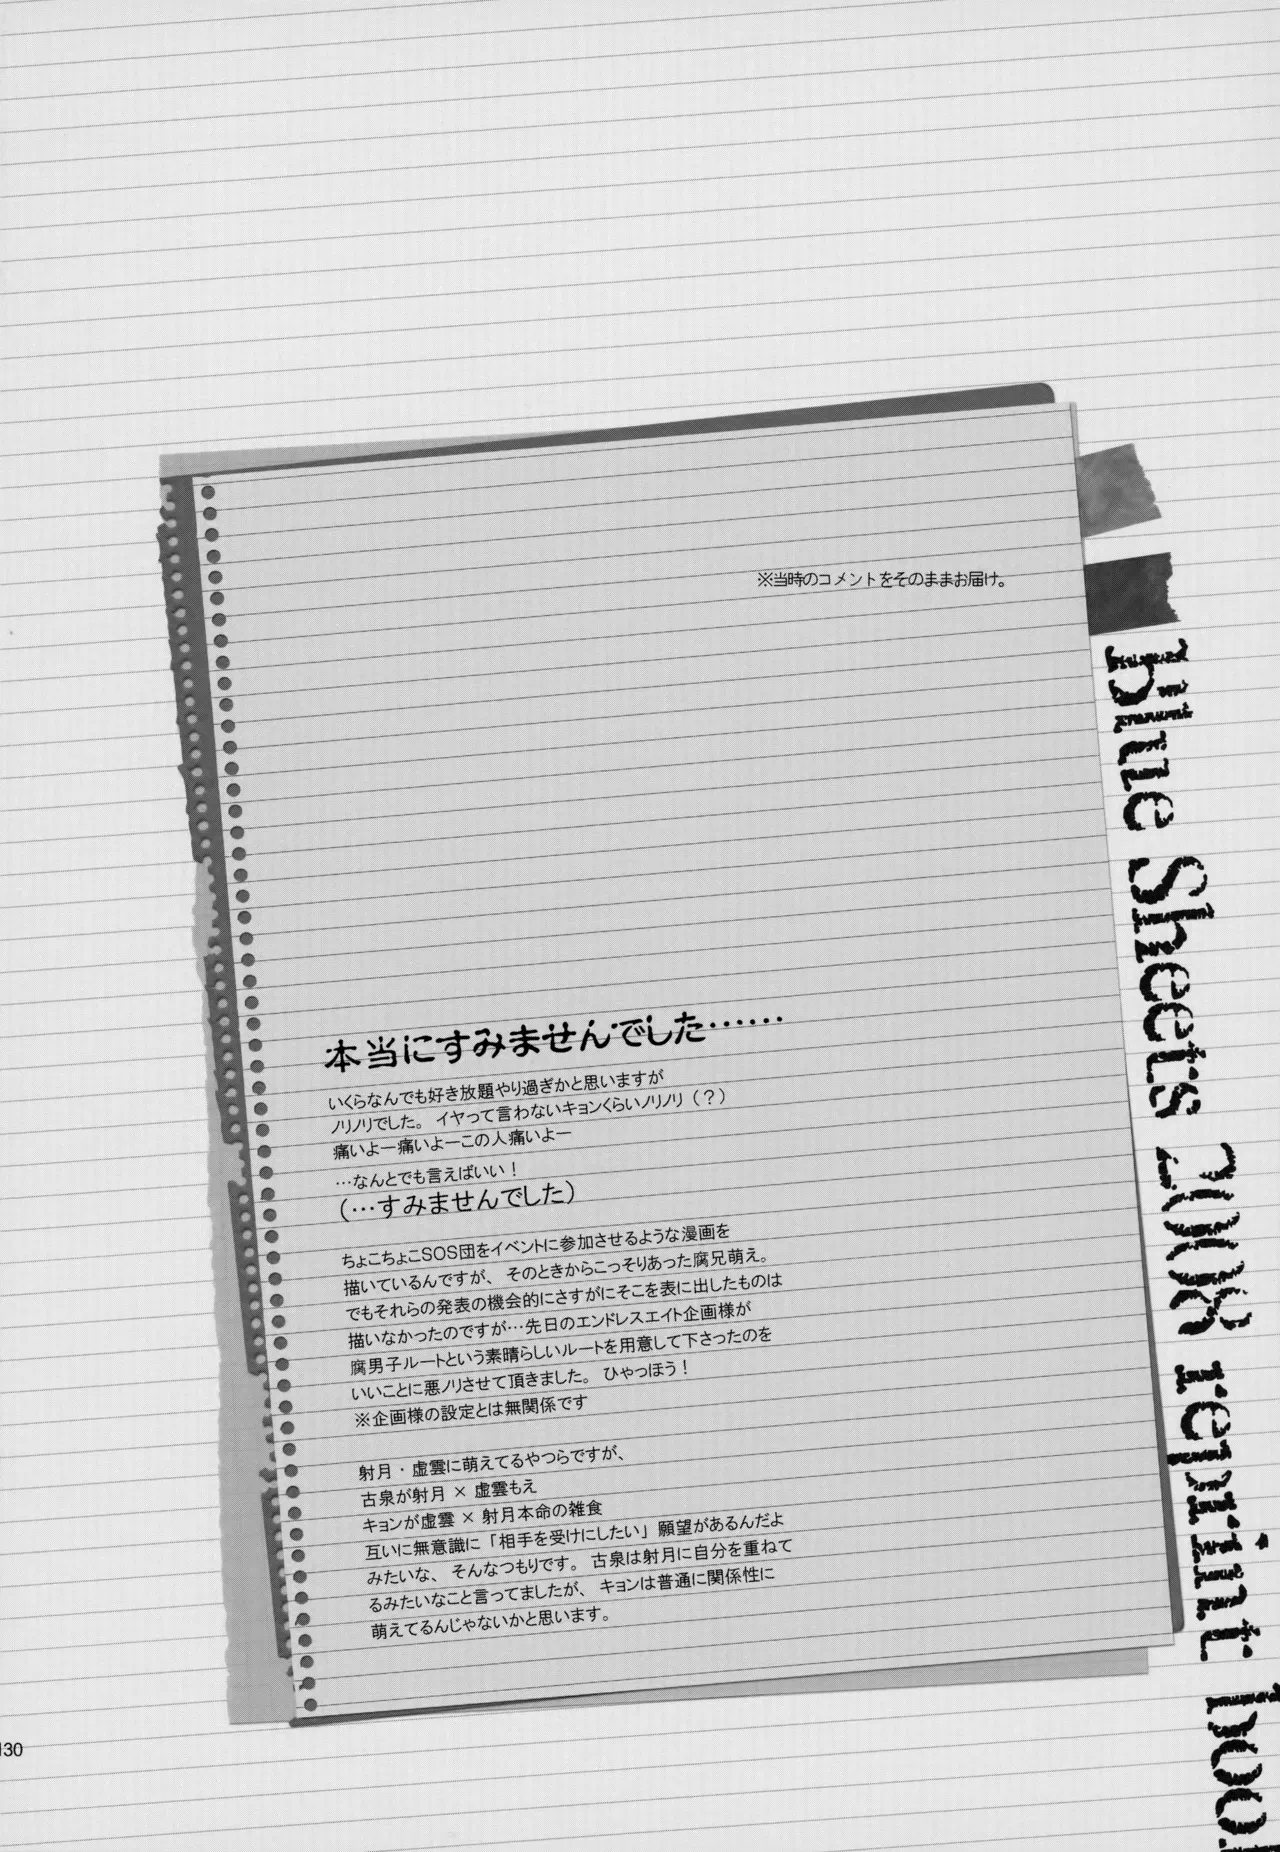 ※当時のコメントをそのままお届け。
本当にすみませんでした……
いくらなんでも好き放題やり過ぎかと思いますが
ノリノリでした。イヤって言わないキョンくらいノリノリ（？）
痛いよー痛いよーこの人痛いよー
…なんとでも言えばいい！
（…すみませんでした）
ちょこちょこSOS団をイベントに参加させるような漫画を
描いているんですが、そのときからこっそりあった腐兄萌え。
でもそれらの発表の機会的にさすがにそこを表に出したものは
描いなかったのですが…先日のエンドレスエイト企画様が
腐男子ルートという素晴らしいルートを用意して下さったのを
いいことに悪ノリさせて頂きました。ひゃっほう！
※企画様の設定とは無関係です
射月・虚雲に萌えてるやつらですが、
古泉が射月×虚雲もえ
キョンが虚雲×射月本命の雑食
互いに無意識に「相手を受けにしたい」願望があるんだよ
みたいな、そんなつもりです。古泉は射月に自分を重ねて
るみたいなこと言ってましたが、キョンは普通に関係性に
萌えてるんじゃないかと思います。
Blue Sheets 2008 reprint book
130